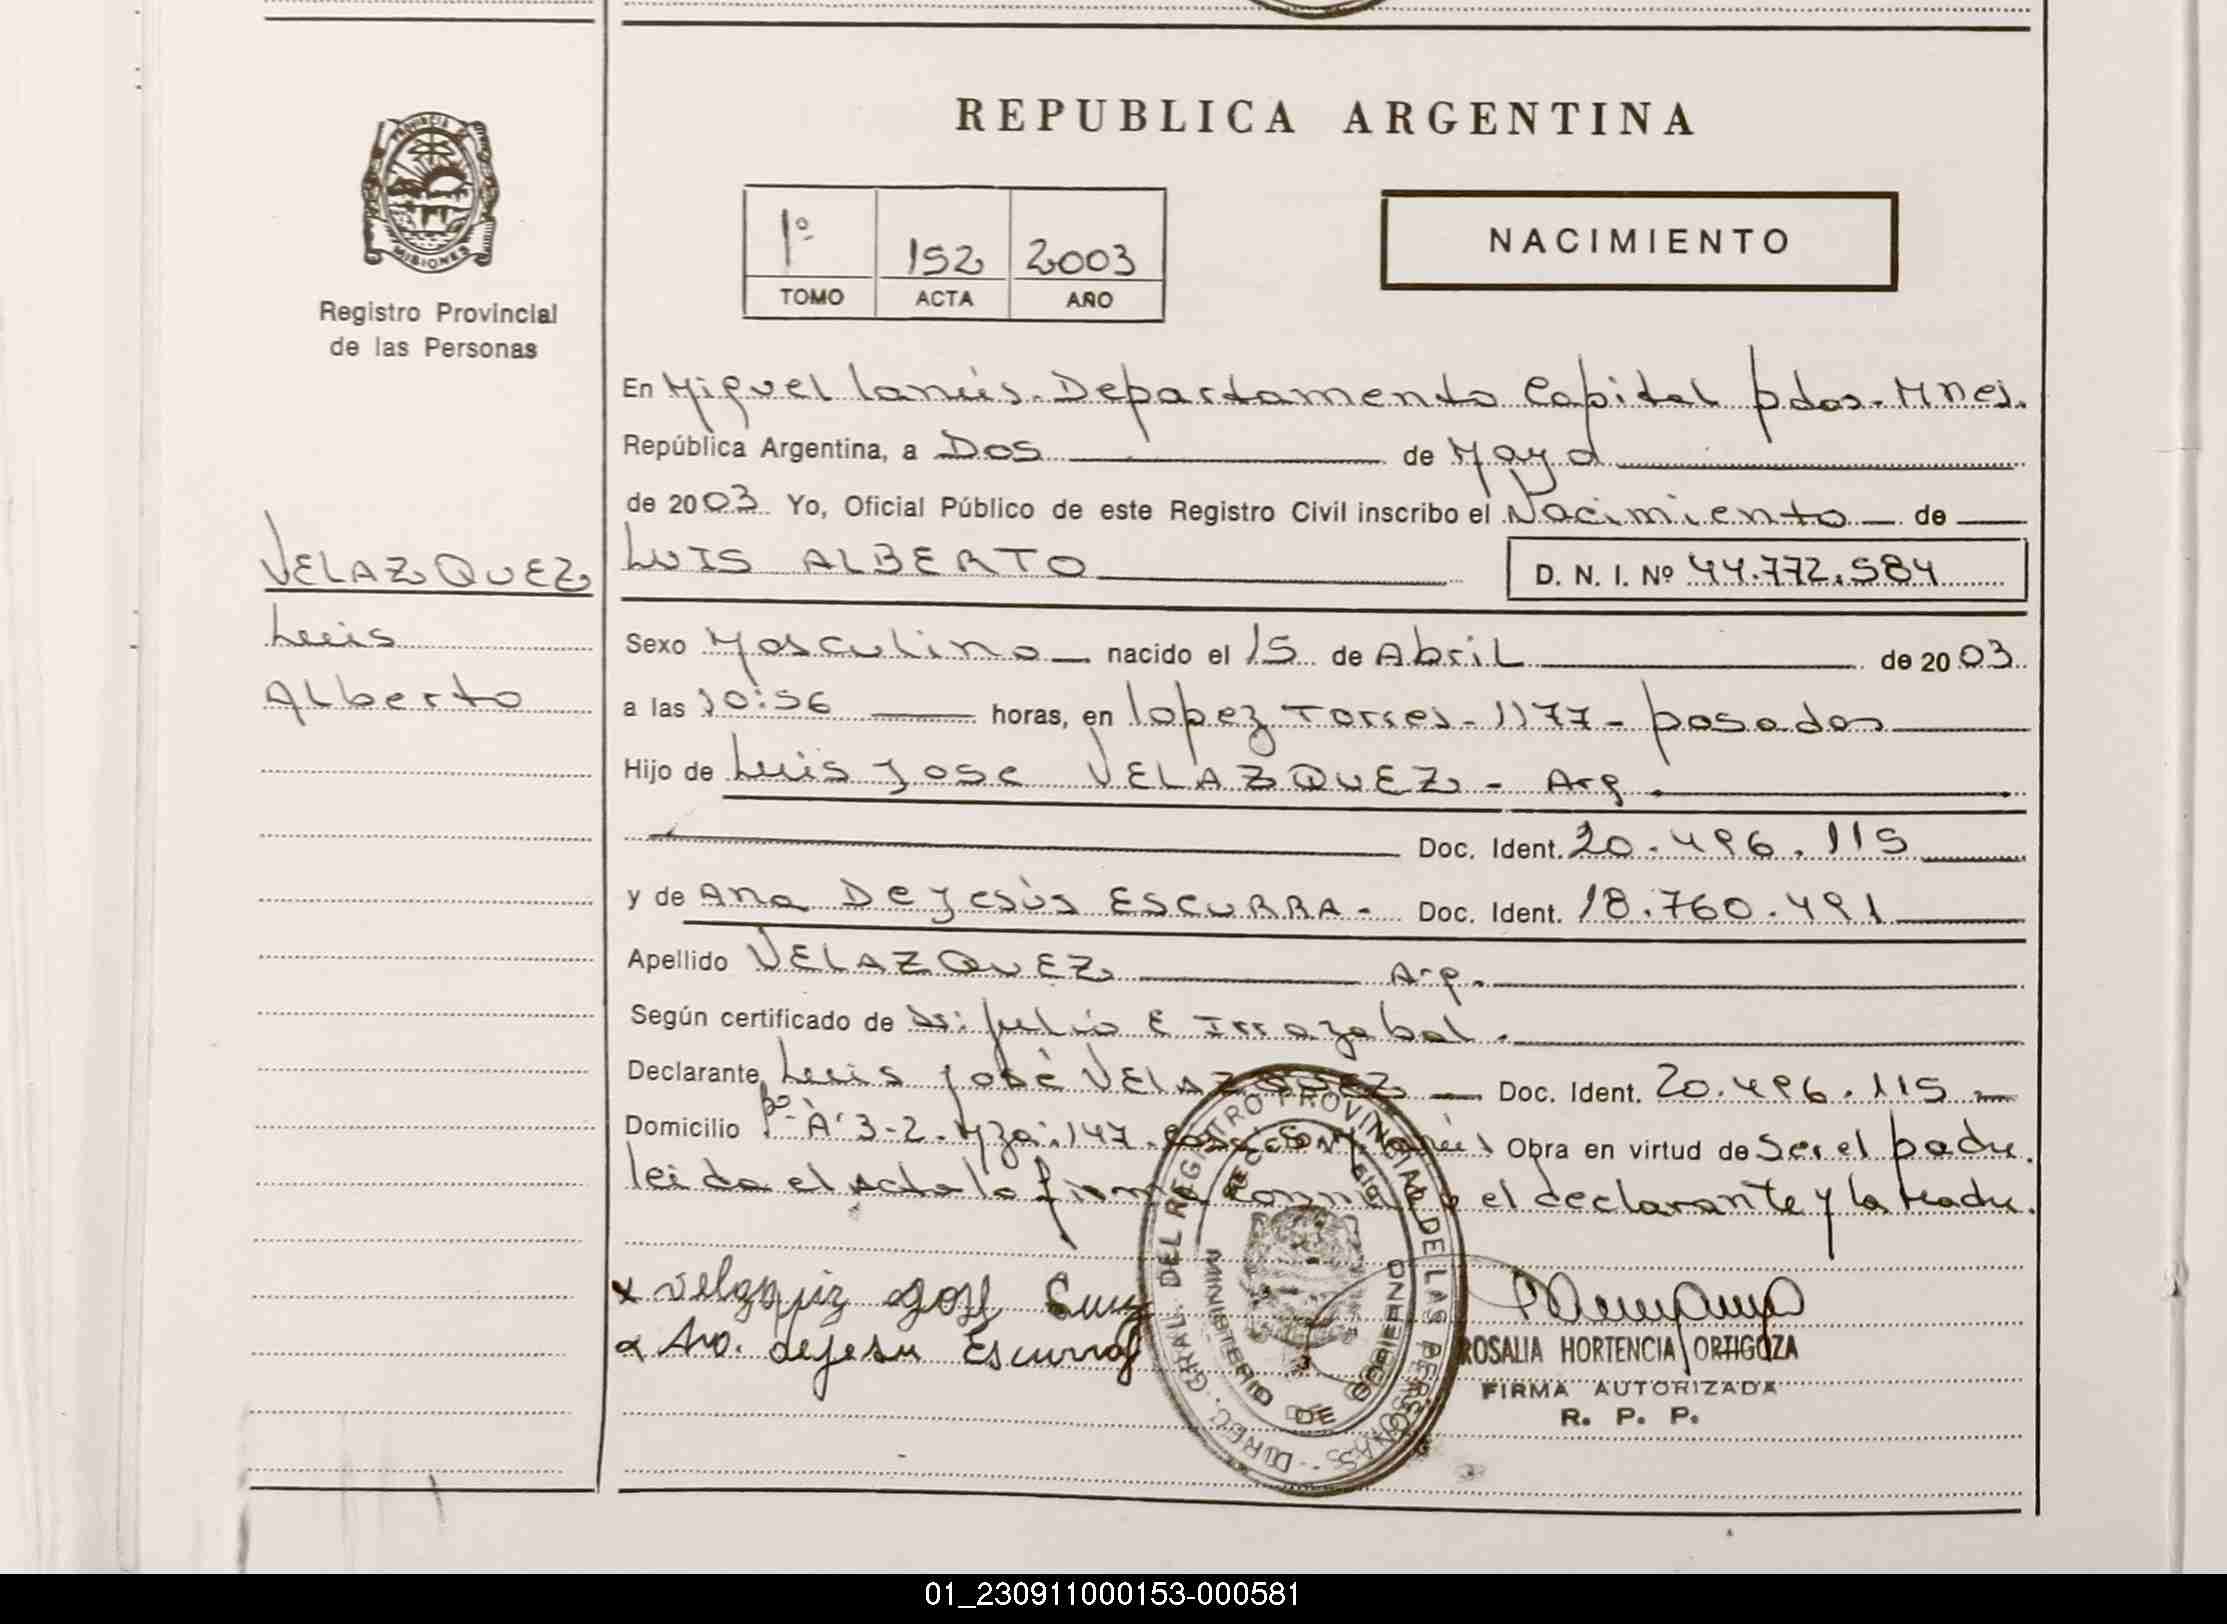 REPUBLICA ARGENTINA
PROVINCIA DE
MISIONES
Registro Provincial
de las Personas
1º 152 2003
TOMO ACTA AÑO
NACIMIENTO
En Miguel Lanús. Departamento Capital pdas. Mnes.
República Argentina, a Dos de Mayo
de 2003 Yo, Oficial Público de este Registro Civil inscribo el Nacimiento de
VELAZQUEZ
Luis
Alberto
LUIS ALBERTO D. N. I. Nº 44.772.584
Sexo Masculino nacido el 15 de Abril de 2003
a las 10:56 horas, en Lopez Torres - 1177 - posadas
Hijo de Luis Jose VELAZQUEZ - Arg
Doc. Ident. 20.496.115
y de Ana De Jesús ESCURRA - Doc. Ident. 18.760.491
Apellido VELAZQUEZ Arg.
Según certificado de Dr: Julio E Irrazabal.
Declarante Luis José VELAZQUEZ Doc. Ident. 20.496.115
Domicilio Bº A 3-2. Mza: 147. Lanús Obra en virtud de Ser el padre.
leida el acta la firma el declarante y la Madre.
x Velazquiz Luis
x Ana. dejesu Escurra
DIREC. GRAL. DEL REGISTRO PROVINCIAL DE LAS PERSONAS
MINISTERIO DE GOBIERNO
3
ROSALIA HORTENCIA ORTIGOZA
FIRMA AUTORIZADA
R. P. P.
01_230911000153-000581